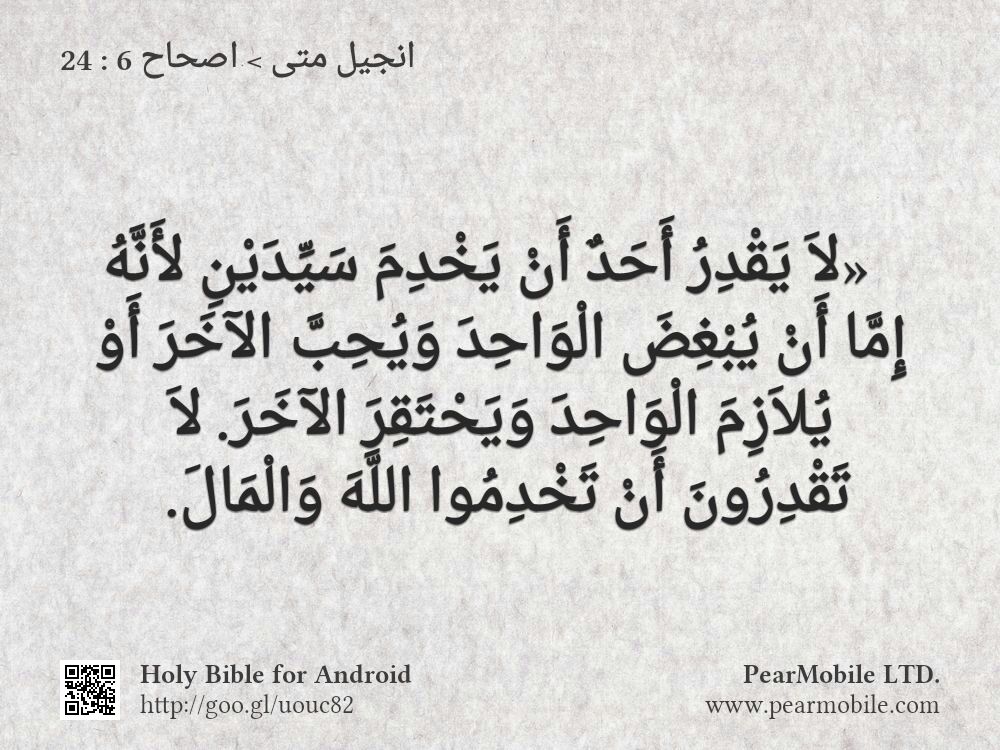 انجيل متى > اصحاح 6 : 24
«لاَ يَقْدِرُ أَحَدٌ أَنْ يَخْدِمَ سَيِّدَيْنِ لأَنَّهُ
إِمَّا أَنْ يُبْغِضَ الْوَاحِدَ وَيُحِبَّ الآخَرَ أَوْ
يُلاَزِمَ الْوَاحِدَ وَيَحْتَقِرَ الآخَرَ. لاَ
تَقْدِرُونَ أَنْ تَخْدِمُوا اللَّهَ وَالْمَالَ.
Holy Bible for Android
http://goo.gl/uouc82
PearMobile LTD.
www.pearmobile.com